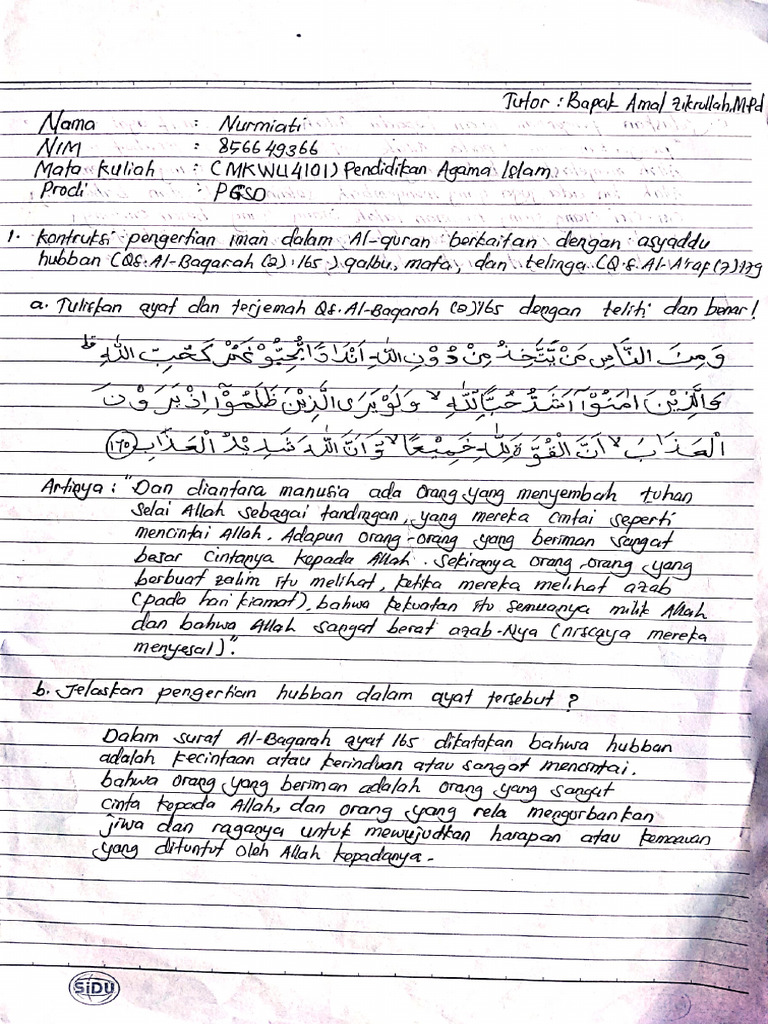 Tutor : Bapak Amal Zikrullah, M.Pd
Nama : Nurmiati
NIM : 856649366
Mata Kuliah : (MKWU4101) Pendidikan Agama Islam
Prodi : PGSD
1. Kontruksi pengertian iman dalam Al-quran berkaitan dengan asyaddu
hubban (QS. Al-Baqarah (2) : 165) qalbu, mata, dan telinga (Q.S. Al-A'raf (7) 179
a. Tuliskan ayat dan terjemah QS. Al-Baqarah (2) 165 dengan teliti dan benar!
وَمِنَ النَّاسِ مَنْ يَّتَّخِذُ مِنْ دُوْنِ اللّٰهِ اَنْدَادًا يُّحِبُّوْنَهُمْ كَحُبِّ اللّٰهِ ۗ
وَالَّذِيْنَ اٰمَنُوْٓا اَشَدُّ حُبًّا لِّلّٰهِ ۙ وَلَوْ يَرَى الَّذِيْنَ ظَلَمُوْٓا اِذْ يَرَوْنَ
الْعَذَابَ ۙ اَنَّ الْقُوَّةَ لِلّٰهِ جَمِيْعًا ۙ وَّاَنَّ اللّٰهَ شَدِيْدُ الْعَذَابِ ١٦٥
Artinya : "Dan diantara manusia ada orang yang menyembah tuhan
selai Allah sebagai tandingan, yang mereka cintai seperti
mencintai Allah. Adapun orang-orang yang beriman sangat
besar cintanya kepada Allah. Sekiranya orang-orang yang
berbuat zalim itu melihat, ketika mereka melihat azab
(pada hari kiamat), bahwa kekuatan itu semuanya milik Allah
dan bahwa Allah sangat berat azab-Nya (niscaya mereka
menyesal)".
b. Jelaskan pengertian hubban dalam ayat tersebut ?
Dalam surat Al-Baqarah ayat 165 dikatakan bahwa hubban
adalah kecintaan atau kerinduan atau sangat mencintai.
bahwa orang yang beriman adalah orang yang sangat
cinta kepada Allah, dan orang yang rela mengorbankan
jiwa dan raganya untuk mewujudkan harapan atau kemauan
yang dituntut oleh Allah kepadanya.
SiDU